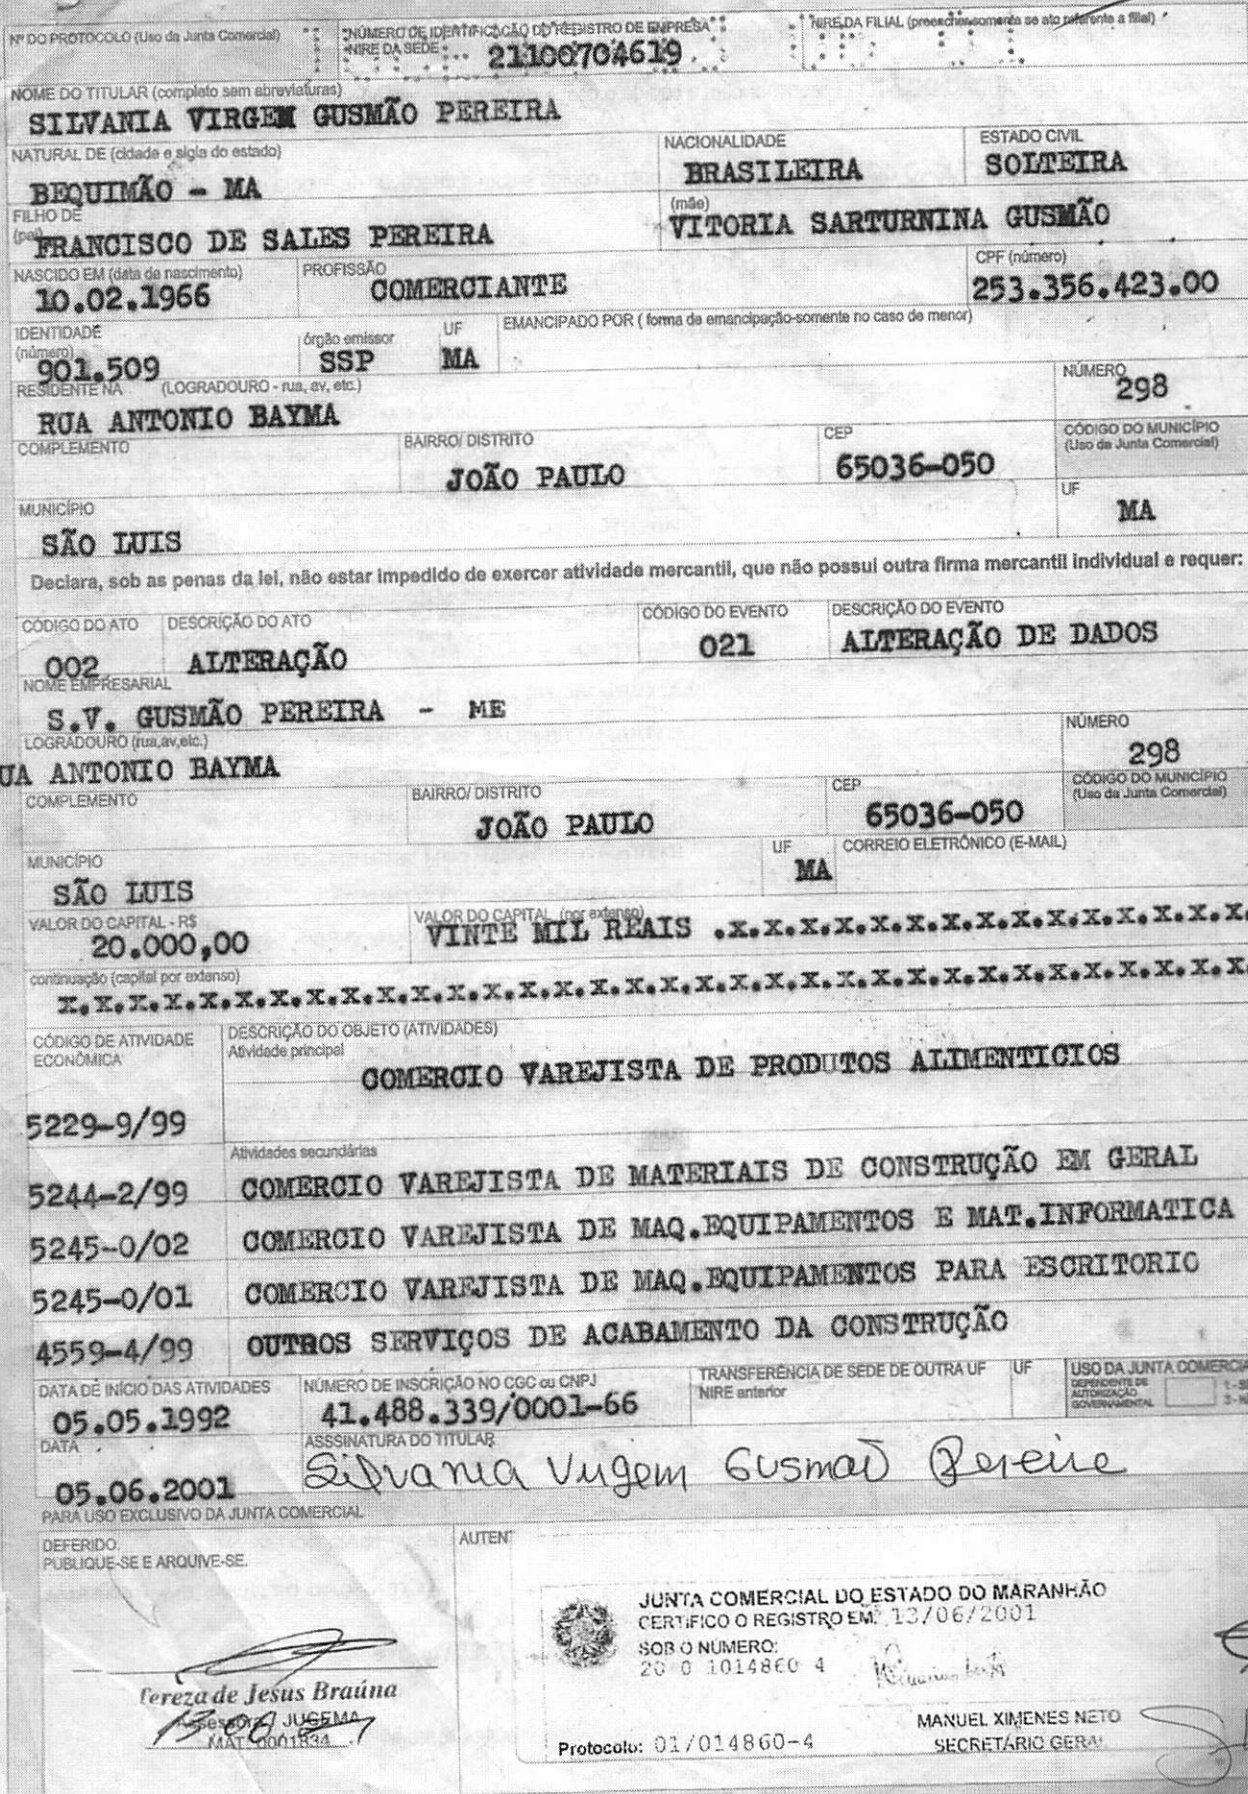 Nº DO PROTOCOLO (Uso da Junta Comercial)
NÚMERO DE IDENTIFICAÇÃO DO REGISTRO DE EMPRESA
NIRE DA SEDE
21100704619
NIRE DA FILIAL (preencher somente se ato referente a filial)
NOME DO TITULAR (completo sem abreviaturas)
SILVANIA VIRGEM GUSMÃO PEREIRA
NATURAL DE (cidade e sigla do estado)
BEQUIMÃO - MA
NACIONALIDADE
BRASILEIRA
ESTADO CIVIL
SOLTEIRA
FILHO DE
(pai)
FRANCISCO DE SALES PEREIRA
(mãe)
VITORIA SARTURNINA GUSMÃO
NASCIDO EM (data de nascimento)
10.02.1966
PROFISSÃO
COMERCIANTE
CPF (número)
253.356.423.00
IDENTIDADE
(número)
901.509
órgão emissor
SSP
UF
MA
EMANCIPADO POR ( forma de emancipação-somente no caso de menor)
RESIDENTE NA (LOGRADOURO - rua, av, etc.)
RUA ANTONIO BAYMA
NÚMERO
298
COMPLEMENTO
BAIRRO/ DISTRITO
JOÃO PAULO
CEP
65036-050
CÓDIGO DO MUNICÍPIO
(Uso da Junta Comercial)
MUNICÍPIO
SÃO LUIS
UF
MA
Declara, sob as penas da lei, não estar impedido de exercer atividade mercantil, que não possui outra firma mercantil individual e requer:
CÓDIGO DO ATO
002
DESCRIÇÃO DO ATO
ALTERAÇÃO
CÓDIGO DO EVENTO
021
DESCRIÇÃO DO EVENTO
ALTERAÇÃO DE DADOS
NOME EMPRESARIAL
S.V. GUSMÃO PEREIRA - ME
LOGRADOURO (rua,av,etc.)
UA ANTONIO BAYMA
NÚMERO
298
COMPLEMENTO
BAIRRO/ DISTRITO
JOÃO PAULO
CEP
65036-050
CÓDIGO DO MUNICÍPIO
(Uso da Junta Comercial)
MUNICÍPIO
SÃO LUIS
UF
MA
CORREIO ELETRÔNICO (E-MAIL)
VALOR DO CAPITAL - R$
20.000,00
VALOR DO CAPITAL (por extenso)
VINTE MIL REAIS .x.x.x.x.x.x.x.x.x.x.x.x.x.x.x.
continuação (capital por extenso)
x.x.x.x.x.x.x.x.x.x.x.x.x.x.x.x.x.x.x.x.x.x.x.x.x.x.x.x.x.x.x.x.x.x
CÓDIGO DE ATIVIDADE
ECONÔMICA
5229-9/99
DESCRIÇÃO DO OBJETO (ATIVIDADES)
Atividade principal
COMERCIO VAREJISTA DE PRODUTOS ALIMENTICIOS
Atividades secundárias
5244-2/99 COMERCIO VAREJISTA DE MATERIAIS DE CONSTRUÇÃO EM GERAL
5245-0/02 COMERCIO VAREJISTA DE MAQ.EQUIPAMENTOS E MAT.INFORMATICA
5245-0/01 COMERCIO VAREJISTA DE MAQ.EQUIPAMENTOS PARA ESCRITORIO
4559-4/99 OUTROS SERVIÇOS DE ACABAMENTO DA CONSTRUÇÃO
DATA DE INÍCIO DAS ATIVIDADES
05.05.1992
NÚMERO DE INSCRIÇÃO NO CGC ou CNPJ
41.488.339/0001-66
TRANSFERÊNCIA DE SEDE DE OUTRA UF
NIRE anterior
UF
USO DA JUNTA COMERCIA
DEPENDENTE DE
AUTORIZAÇÃO
GOVERNAMENTAL
DATA
05.06.2001
ASSSINATURA DO TITULAR
Silvania Virgem Gusmaõ Pereira
PARA USO EXCLUSIVO DA JUNTA COMERCIAL
DEFERIDO.
PUBLIQUE-SE E ARQUIVE-SE.
Tereza de Jesus Braúna
Assessora JUCEMA
MAT. 0001834
AUTENT
JUNTA COMERCIAL DO ESTADO DO MARANHÃO
CERTIFICO O REGISTRO EM: 13/06/2001
SOB O NÚMERO:
20 0 1014860 4
MANUEL XIMENES NETO
SECRETÁRIO GERAL
Protocolo: 01/014860-4